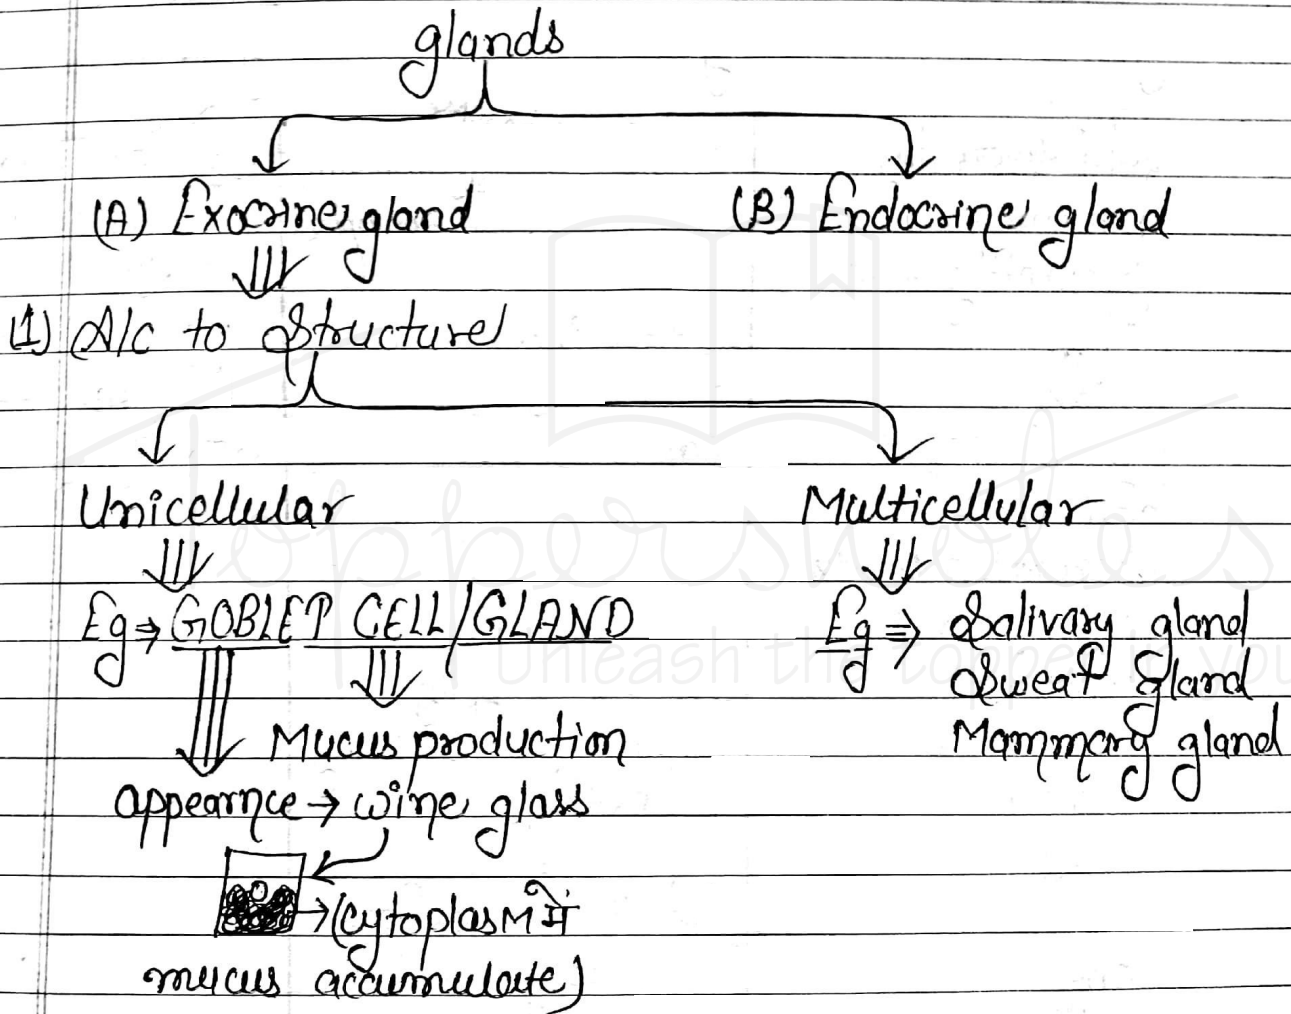 glands
(A) Exocrine gland (B) Endocrine gland
(1) A/c to Structure
Unicellular Multicellular
Eg ⇒ GOBLET CELL/GLAND Eg ⇒ Salivary gland
Sweat gland
Mucus production Mammary gland
appearnce → wine glass
→ (cytoplasm में
mucus accumulate)
Toppersnotes
Unleash the topper in you